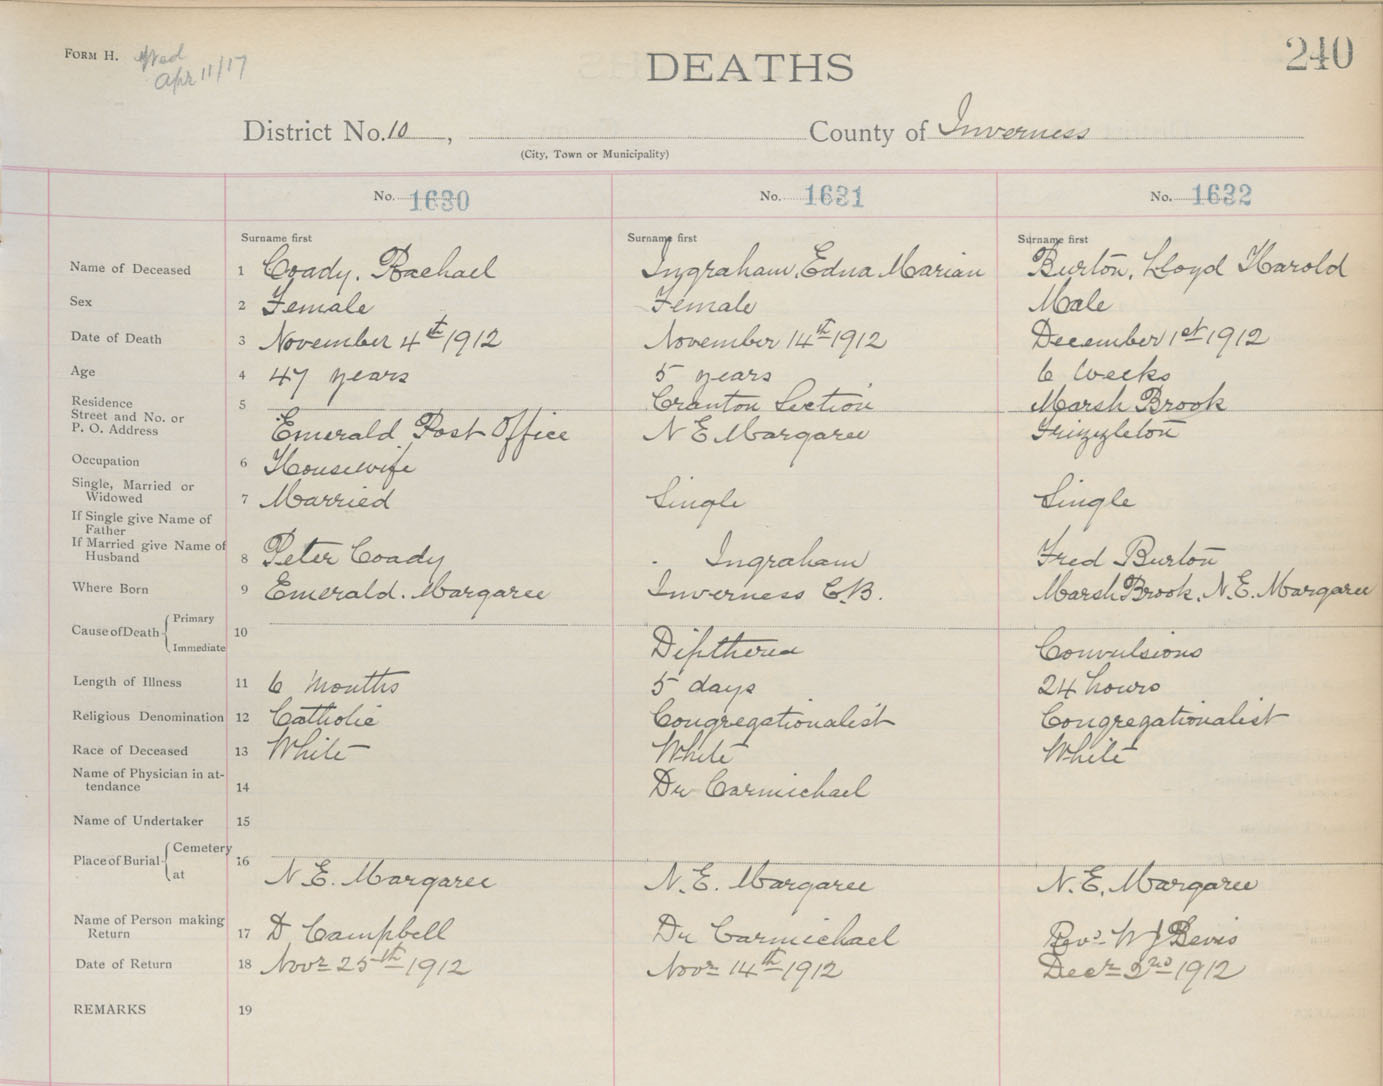 FORM H.
Wed
Apr 11/17
DEATHS
240
District No. 10, County of Inverness
(City, Town or Municipality)
No. 1630 No. 1631 No. 1632
Surname first Surname first Surname first
Name of Deceased 1 Coady, Rachael Ingraham, Edna Marian Burton, Lloyd Harold
Sex 2 Female Female Male
Date of Death 3 November 4th 1912 November 14th 1912 December 1st 1912
Age 4 47 years 5 years 6 weeks
Residence 5 Cranton Section Marsh Brook
Street and No. or
P. O. Address Emerald, Post Office N E Margaree Frizzleton
Occupation 6 Housewife
Single, Married or
Widowed 7 Married Single Single
If Single give Name of
Father
If Married give Name of
Husband 8 Peter Coady Ingraham Fred Burton
Where Born 9 Emerald. Margaree Inverness C.B. Marsh Brook, N.E. Margaree
Cause of Death Primary
10
Immediate Diptheria Convulsions
Length of Illness 11 6 months 5 days 24 hours
Religious Denomination 12 Catholic Congregationalist Congregationalist
Race of Deceased 13 White White White
Name of Physician in at-
tendance 14 Dr Carmichael
Name of Undertaker 15
Place of Burial Cemetery 16
at N.E. Margaree N.E. Margaree N.E. Margaree
Name of Person making
Return 17 D Campbell Dr Carmichael Revd W J Bevis
Date of Return 18 Novr 25th 1912 Novr 14th 1912 Decr 1912
REMARKS 19